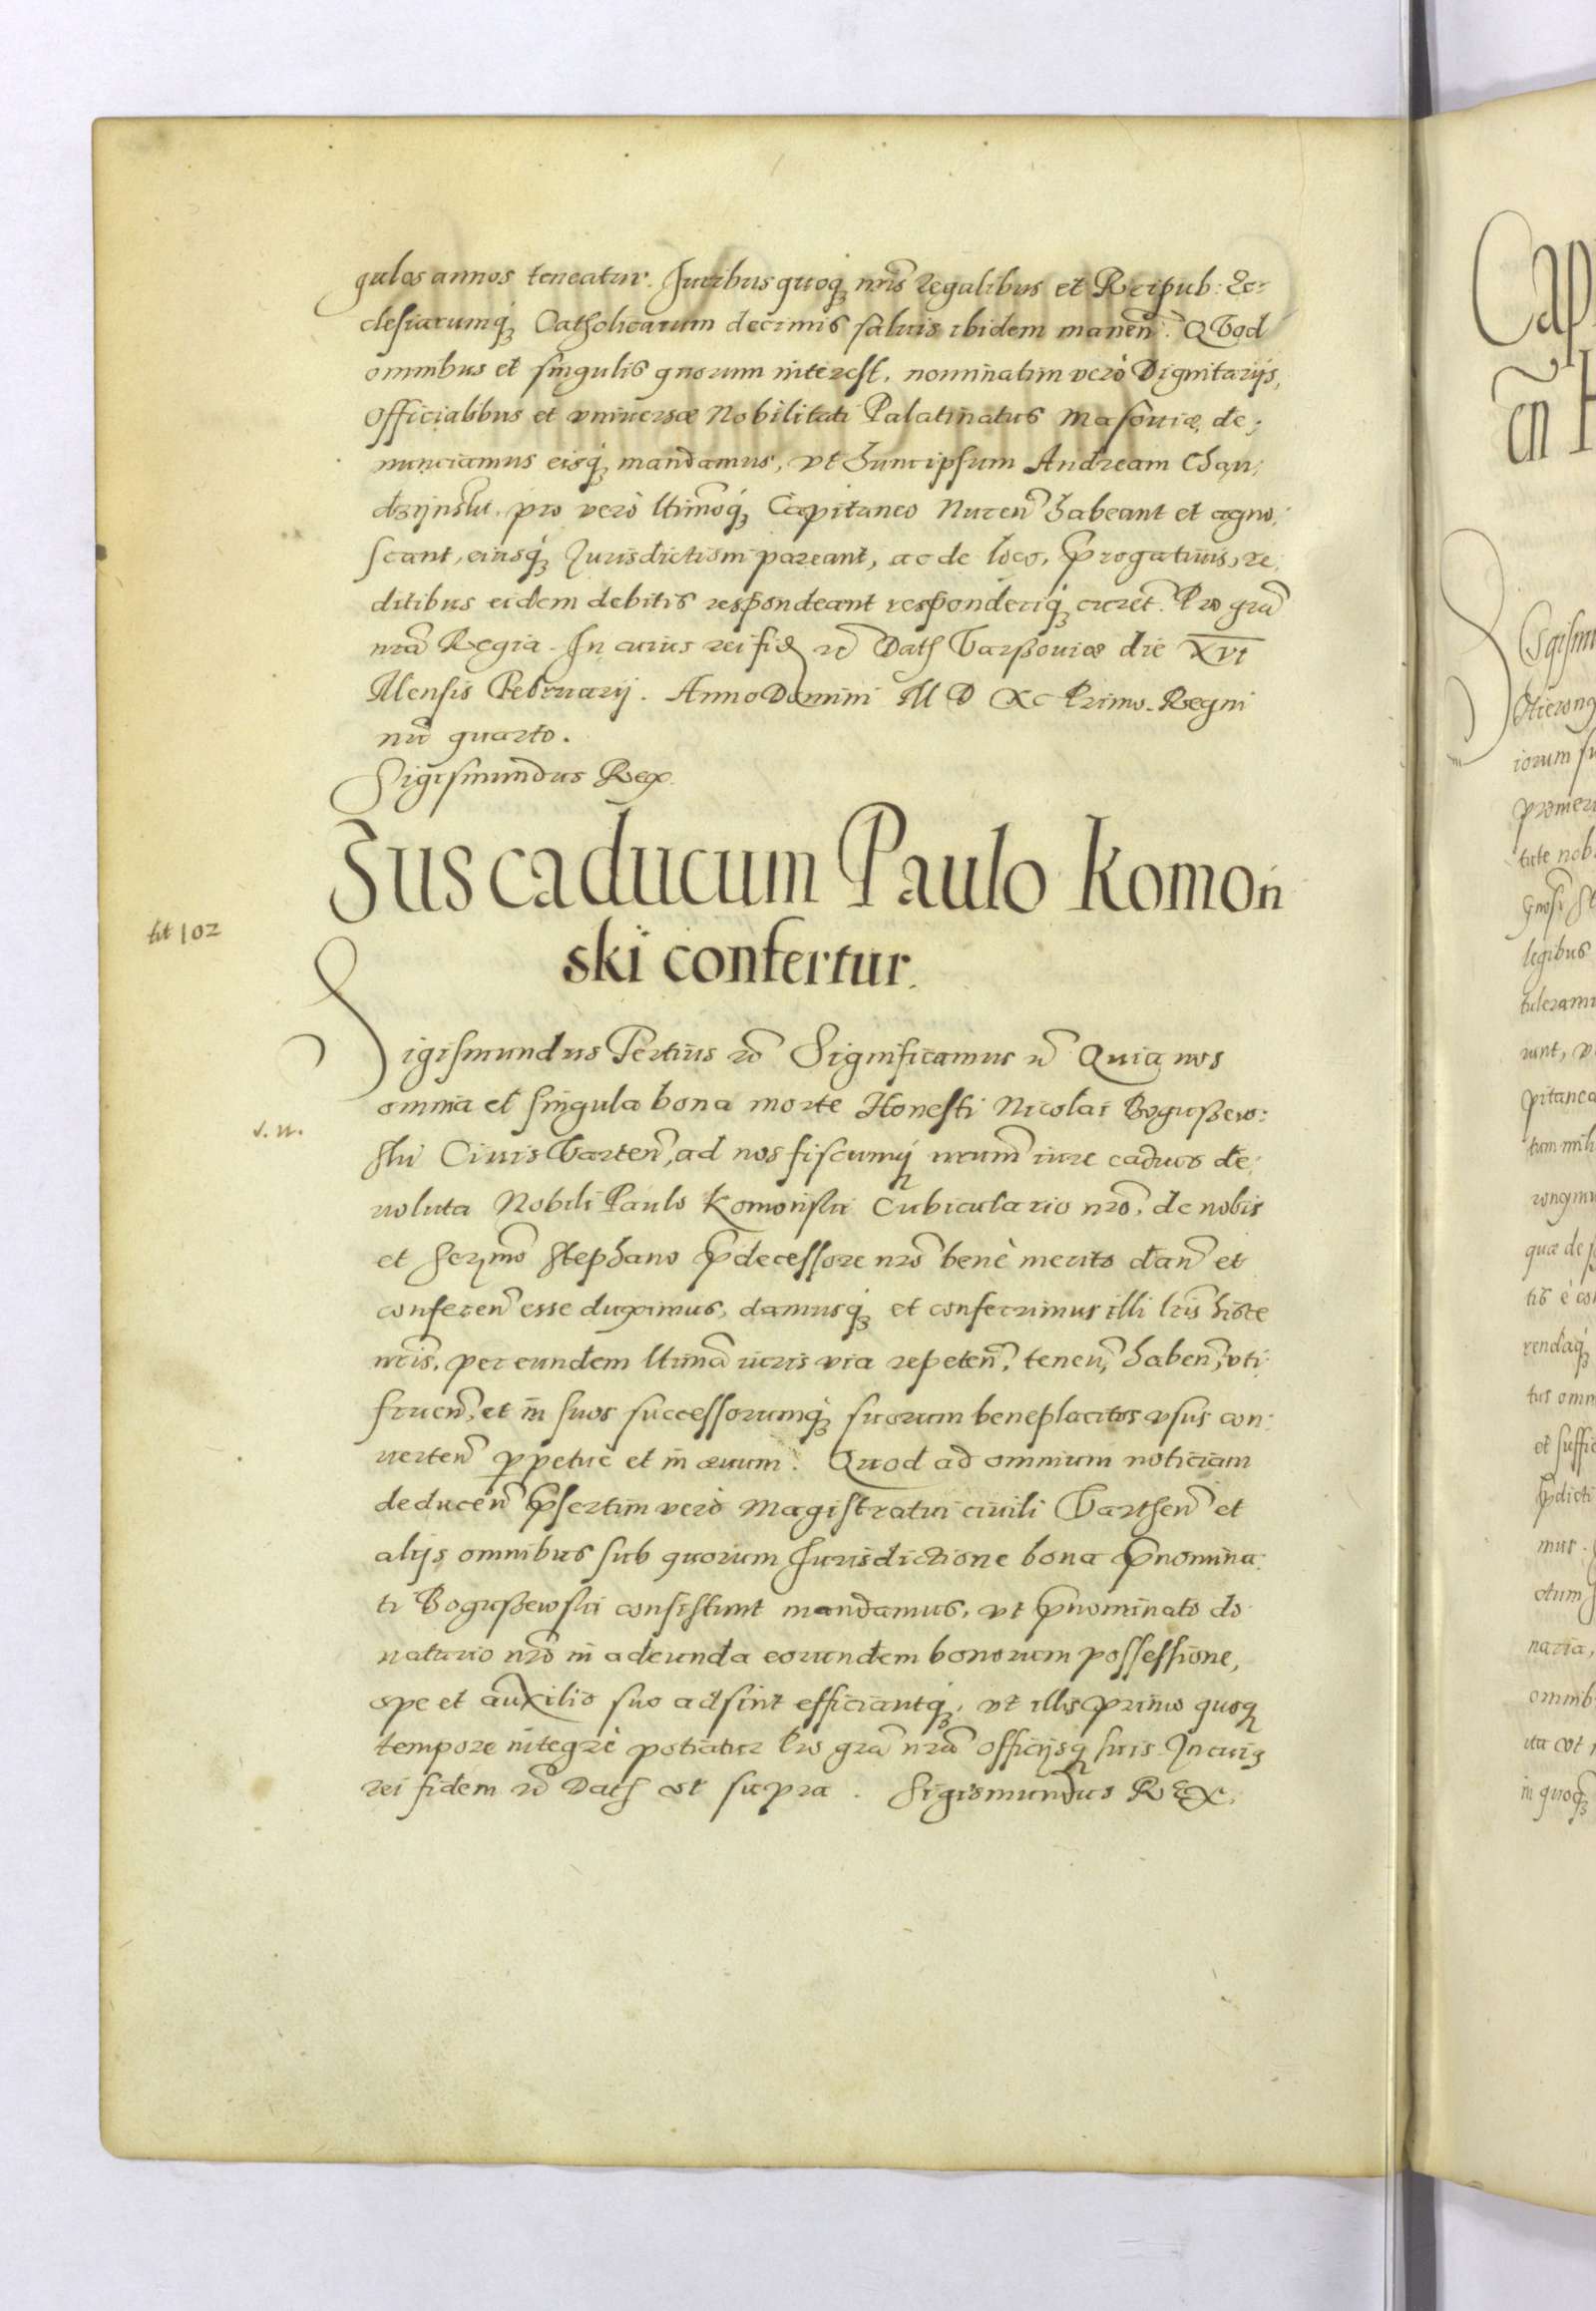 gulos annos teneatur. Juribus quoq₃ nr̃is regalibus et Reipub: Ec:
clesiarumq́₃ Catholicarum decimis saluis ibidem manen̄. QVod
omnibus et singulis quorum interest, nominatim verò Dignitarijs,
Officialibus et vniuersæ Nobilitati Palatinatus Masouiæ de;
nunciamus eisq́₃ mandamus, vt hunc ipsum Andream Chąn;
dzÿnskı. pro verò ltimoq́₃ Capitaneo Nuren̄ habeant et agno;
scant, eiusq́₃ Jurisdictioni pareant, ac de loco, p̄rogatiuis, re;
ditibus eidem debitis respondeant responderiq́₃ curēt. Pro grã
nrã Regia. In cuius rei fid rē Dath Varßouiæ die XVI
Mensis Februarij. Anno Domini M D XC Primo. Regni
nrĩ quarto.
Sigismundus Rex.
Jus caducum Paulo Komoń
ski confertur.
tit 102
Sigismundus Tertius rō Significamus rō Quia nos
omnia et singula bona morte Honesti Nicolai Bogußew:
s. n.
ski Ciuis Varten̄, ad nos fiscumq́ nrum̄ iure caduco de;
uoluta Nobili Paulo Komoński Cubiculario nrō, de nobis
et Serm̄o Stephano p̄decessore nrō benè merito dan̄ et
conferen̄ esse duximus, damusq́₃ et conferimus illi lris̄ hisce
nris̄, per eundem ltimã iuris via repeten̄, tenen̄, haben̄, vti
fruen̄, et in suos successorumq́₃ suorum beneplacitos vsus con:
uerten̄ ꝑpetuè et in æuum. Quod ad omnium noticiam
deducen̄ p̄sertim verò Magistratui ciuili Varthen̄ et
alijs omnibus sub quorum Jurisdictione bona p̄nomina:
ti Bogußewski consistunt mandamus, vt p̄nominato do
natario nrō in adeunda eorundem bonorum possessione,
ope et auxilio suo adsint efficiantq́₃, vt illis primo quoq₃
tempore integrè potiatur Pro grã nrã officijsq₃ suis. In cuig
rei fidem rō Dath vt supra. Sigismundus REX.